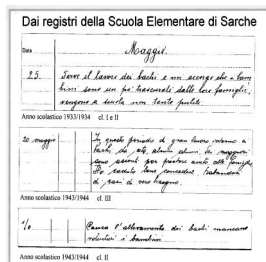 Dai registri della Scuola Elementare di Sarche
Data
Maggio.
25. Ferve il lavoro dei bachi e mi accorgo che i bam
bini sono un po' trascurati dalle loro famiglie,
vengono a scuola non tanto puliti.
Anno scolastico 1933/1934 cl. I e II
20 maggio In questo periodo di gran lavoro intorno ai
bachi da seta, alcuni alunni dei maggiori
sono assenti per prestare aiuto alle famiglie.
Ho veduto bene concedere, trattandosi
di casi di vero bisogno.
Anno scolastico 1943/1944 cl. III
Causa l'allevamento dei bachi mancano
volentieri i bambini.
Anno scolastico 1943/1944 cl. II